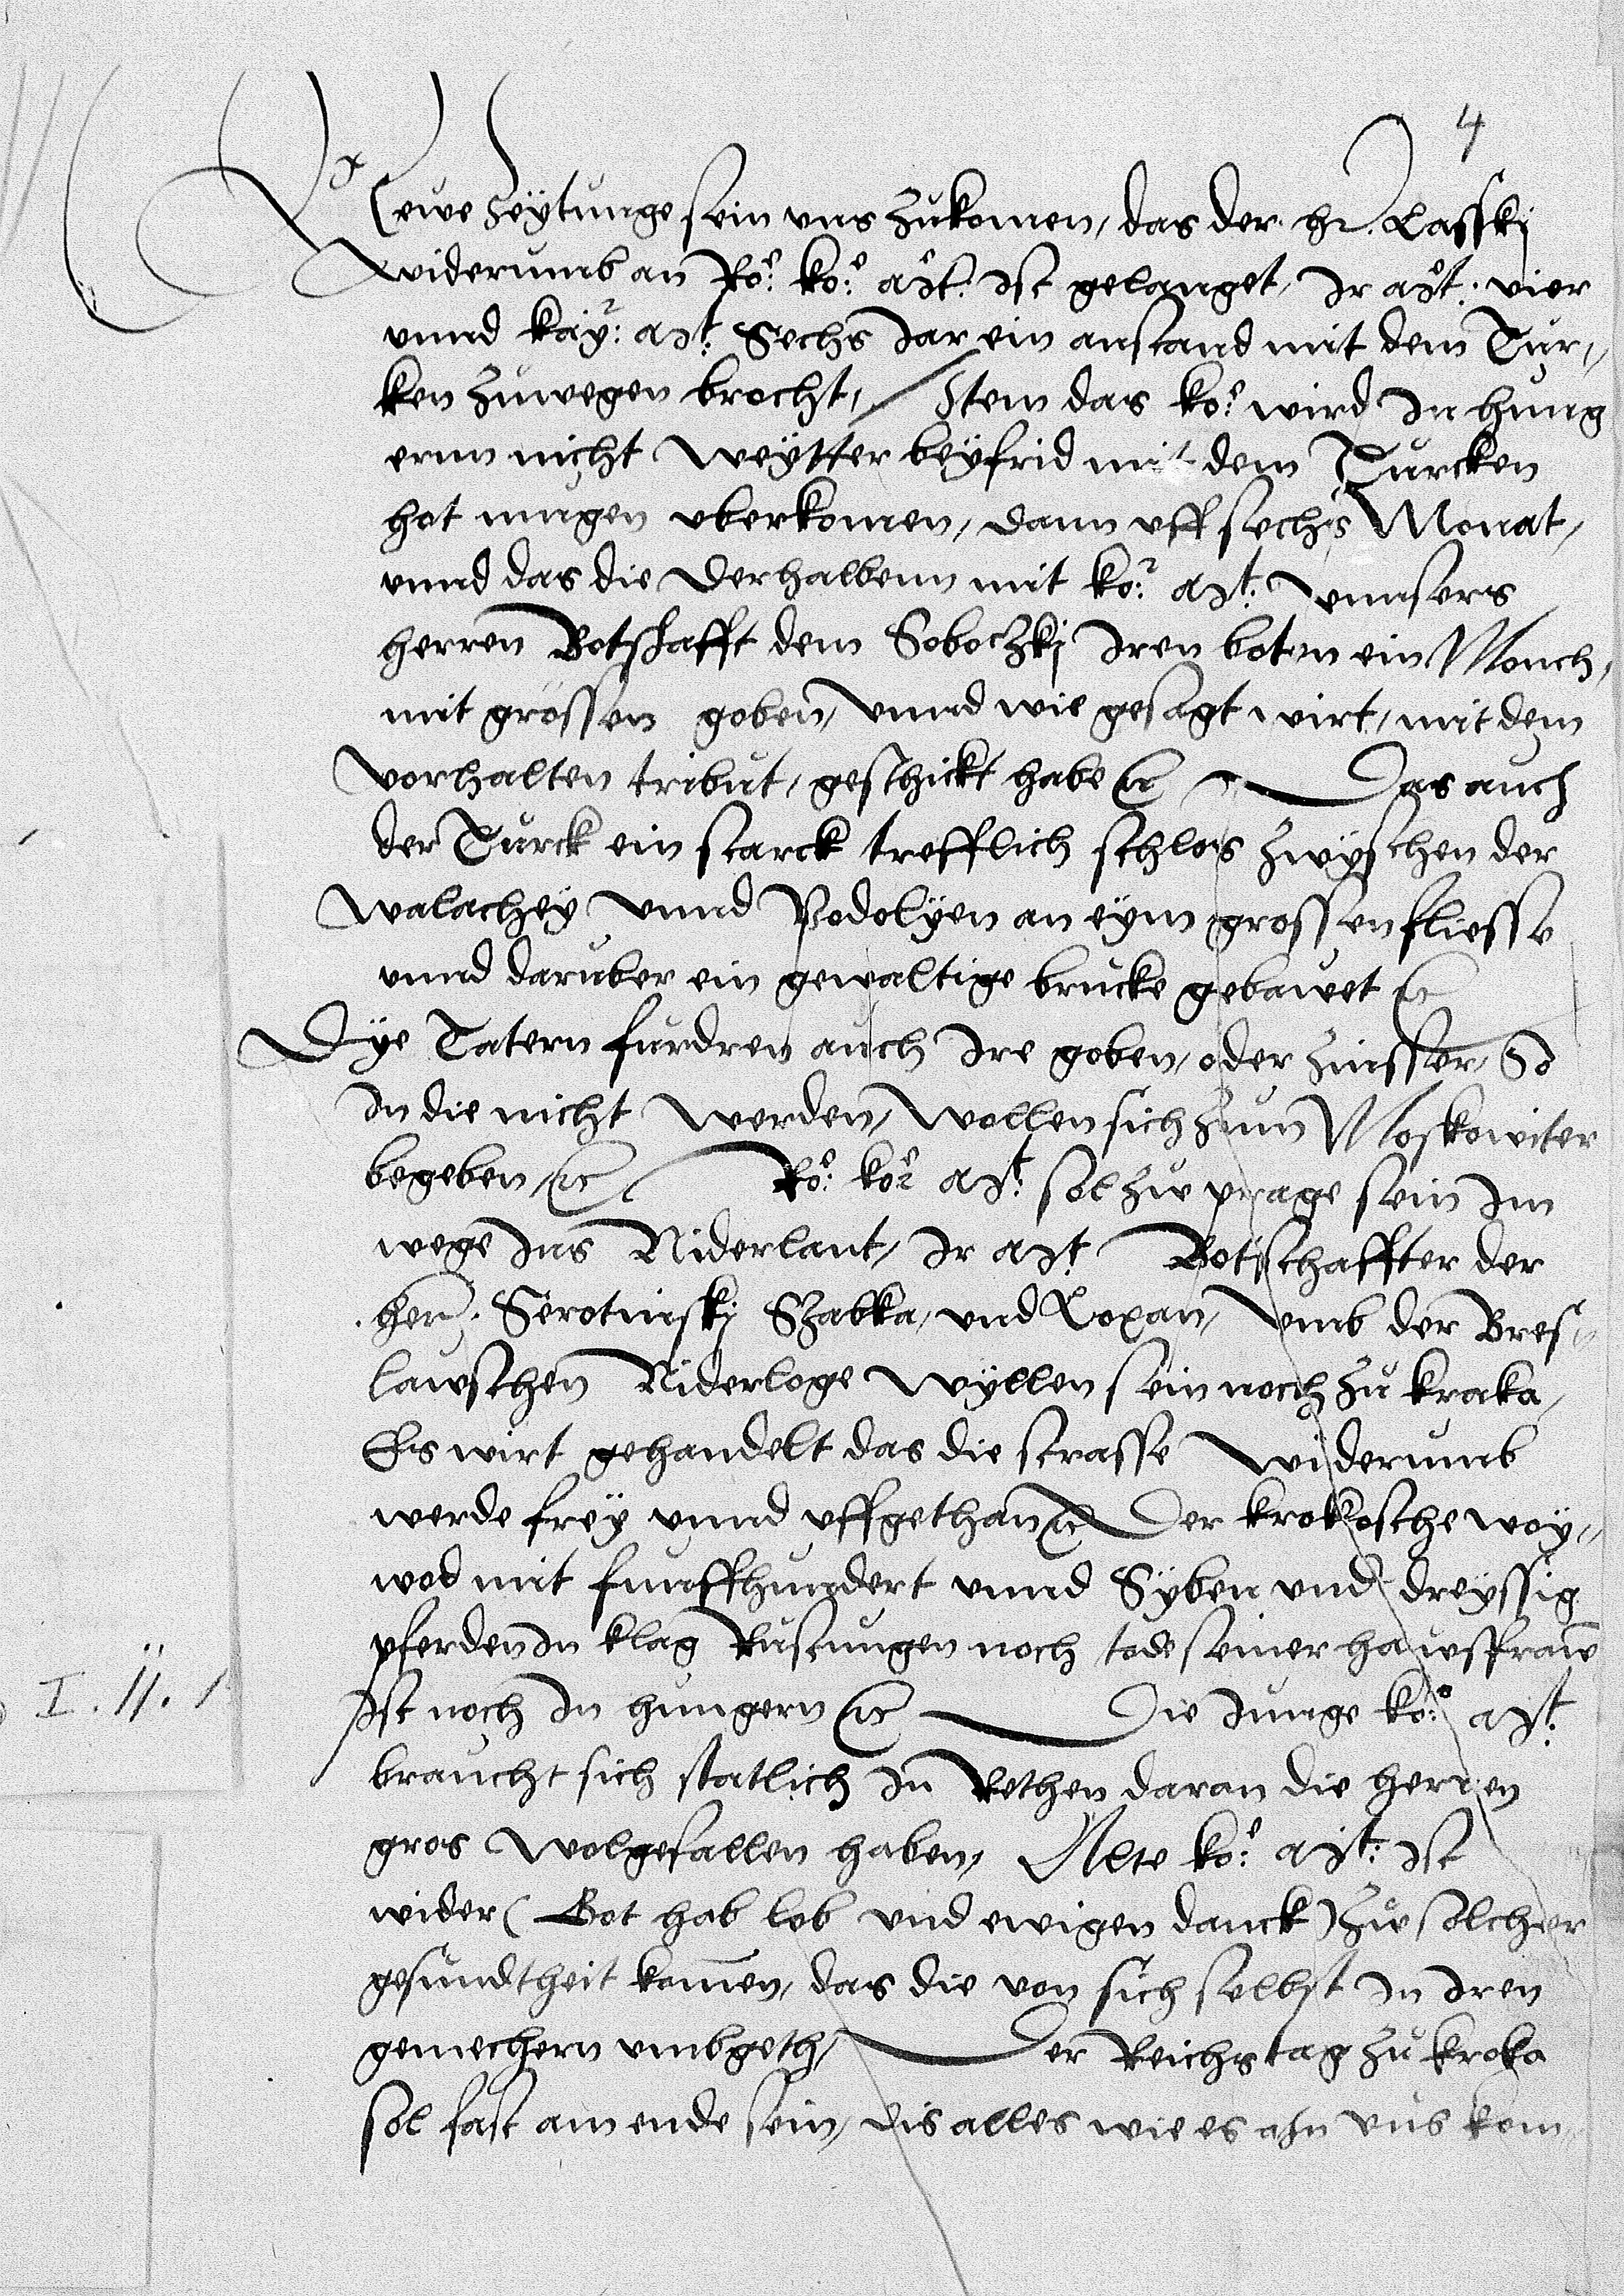 4
Newe zeÿtunge sein vns zukomen, das der h. Lasskj
widerumb an Ro: ko: Mt: ist gelanget, Ir Mt: vier
vnnd kaÿ: Mt: Sechs Jar ein anstand mit dem Tur„
ken zuwegen brocht, Item das ko: wird In hung
ernn nicht weÿtter beÿfrid mit dem Turcken
hot mugen vberkomen, dann vff sechs Monat,
vnnd das die derhalbenn mit ko: Mt: vnnsers
herren Botschafft dem Soboczkj Iren boten ein Monch,
mit grossen goben, vnnd wie gesagt wirt, mit dem
vorhalten tribut, geschickt habe etc Das auch
der Turck ein starck trefflich schlos zwÿschen der
walacheÿ vnnd Podolÿen an eÿm grossen fliesse
vnnd daruber ein gewaltige brucke gebawet etc
Dÿe Tatern furdren auch Ire goben, oder zinsser, So
In die nicht werden, wollen sich zum Moskowiter
begeben, etc Ro: ko: Mt: sol zw prage sein Im
wege Ins Niderlant, Ir Mt Botschaffter der
her: Serotinskj Szabka, vnd Loxan, vmb der Bres„
lawschen Niderloge wÿllen sein noch zu kraka,
Es wirt gehandelt das die strasse widerumb
werde freÿ vnnd vffgethan etc Der krokosche woÿ„
wod mit funffhundert vnnd Sÿben vnd dreÿssig
pferden In klag Rustungen noch tode seiner hawsfraw
Ist noch In hungern etc Die Junge ko: Mt:
I. II. 1
braucht sich statlich In Rethen daran die herren
gros wolgefallen haben, Alte ko: Mt: Ist
wider (Got hab lob vnd ewigen danck) zw solcher
gesundtheit komen, das die von sich selbst In Iren
gemechern vmbgeth, Der Reichstag zu kroka
sol fast am ende sein, dis alles wie es ahn vns kom„